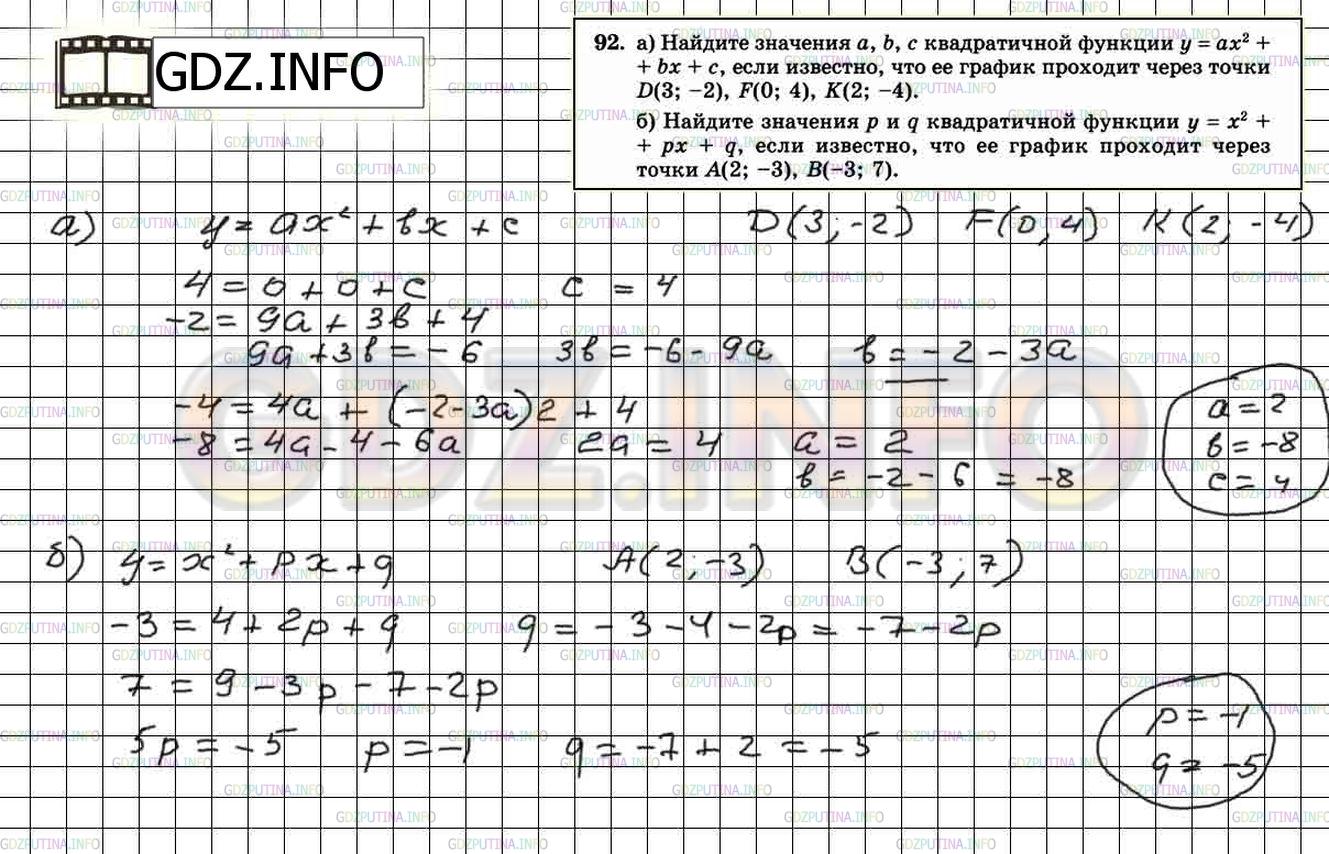 GDZ.INFO
92. а) Найдите значения a, b, c квадратичной функции y = ax² +
+ bx + c, если известно, что ее график проходит через точки
D(3; −2), F(0; 4), K(2; −4).
б) Найдите значения p и q квадратичной функции y = x² +
+ px + q, если известно, что ее график проходит через
точки A(2; −3), B(−3; 7).
а) y = ax² + bx + c D(3; -2) F(0; 4) K(2; -4)
4 = 0 + 0 + c c = 4
-2 = 9a + 3b + 4
9a + 3b = -6 3b = -6 - 9a b = -2 - 3a
-4 = 4a + (-2-3a)2 + 4
-8 = 4a - 4 - 6a 2a = 4 a = 2
b = -2 - 6 = -8
a = 2
b = -8
c = 4
б) y = x² + px + q A(2; -3) B(-3; 7)
-3 = 4 + 2p + q q = -3 - 4 - 2p = -7 - 2p
7 = 9 - 3p - 7 - 2p
5p = -5 p = -1 q = -7 + 2 = -5
p = -1
q = -5
GDZ.INFO
GDZPUTINA.INFO